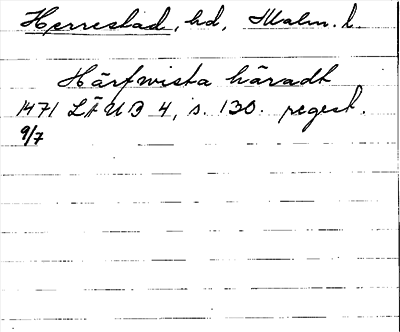 Herrestad, hd, Malm. l.
Härfwista häradt
1471 LÄUB 4, s. 130. regest.
9/7